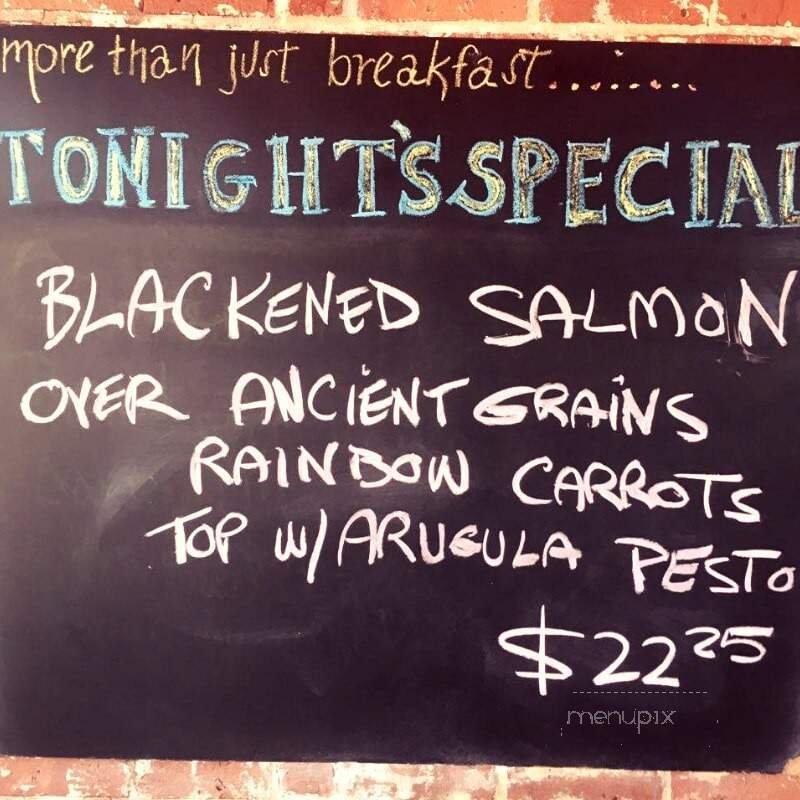 more than just breakfast.........
TONIGHT'S SPECIAL
BLACKENED SALMON
OVER ANCIENT GRAINS
RAINBOW CARROTS
TOP W/ ARUGULA PESTO
$22 25
menupix